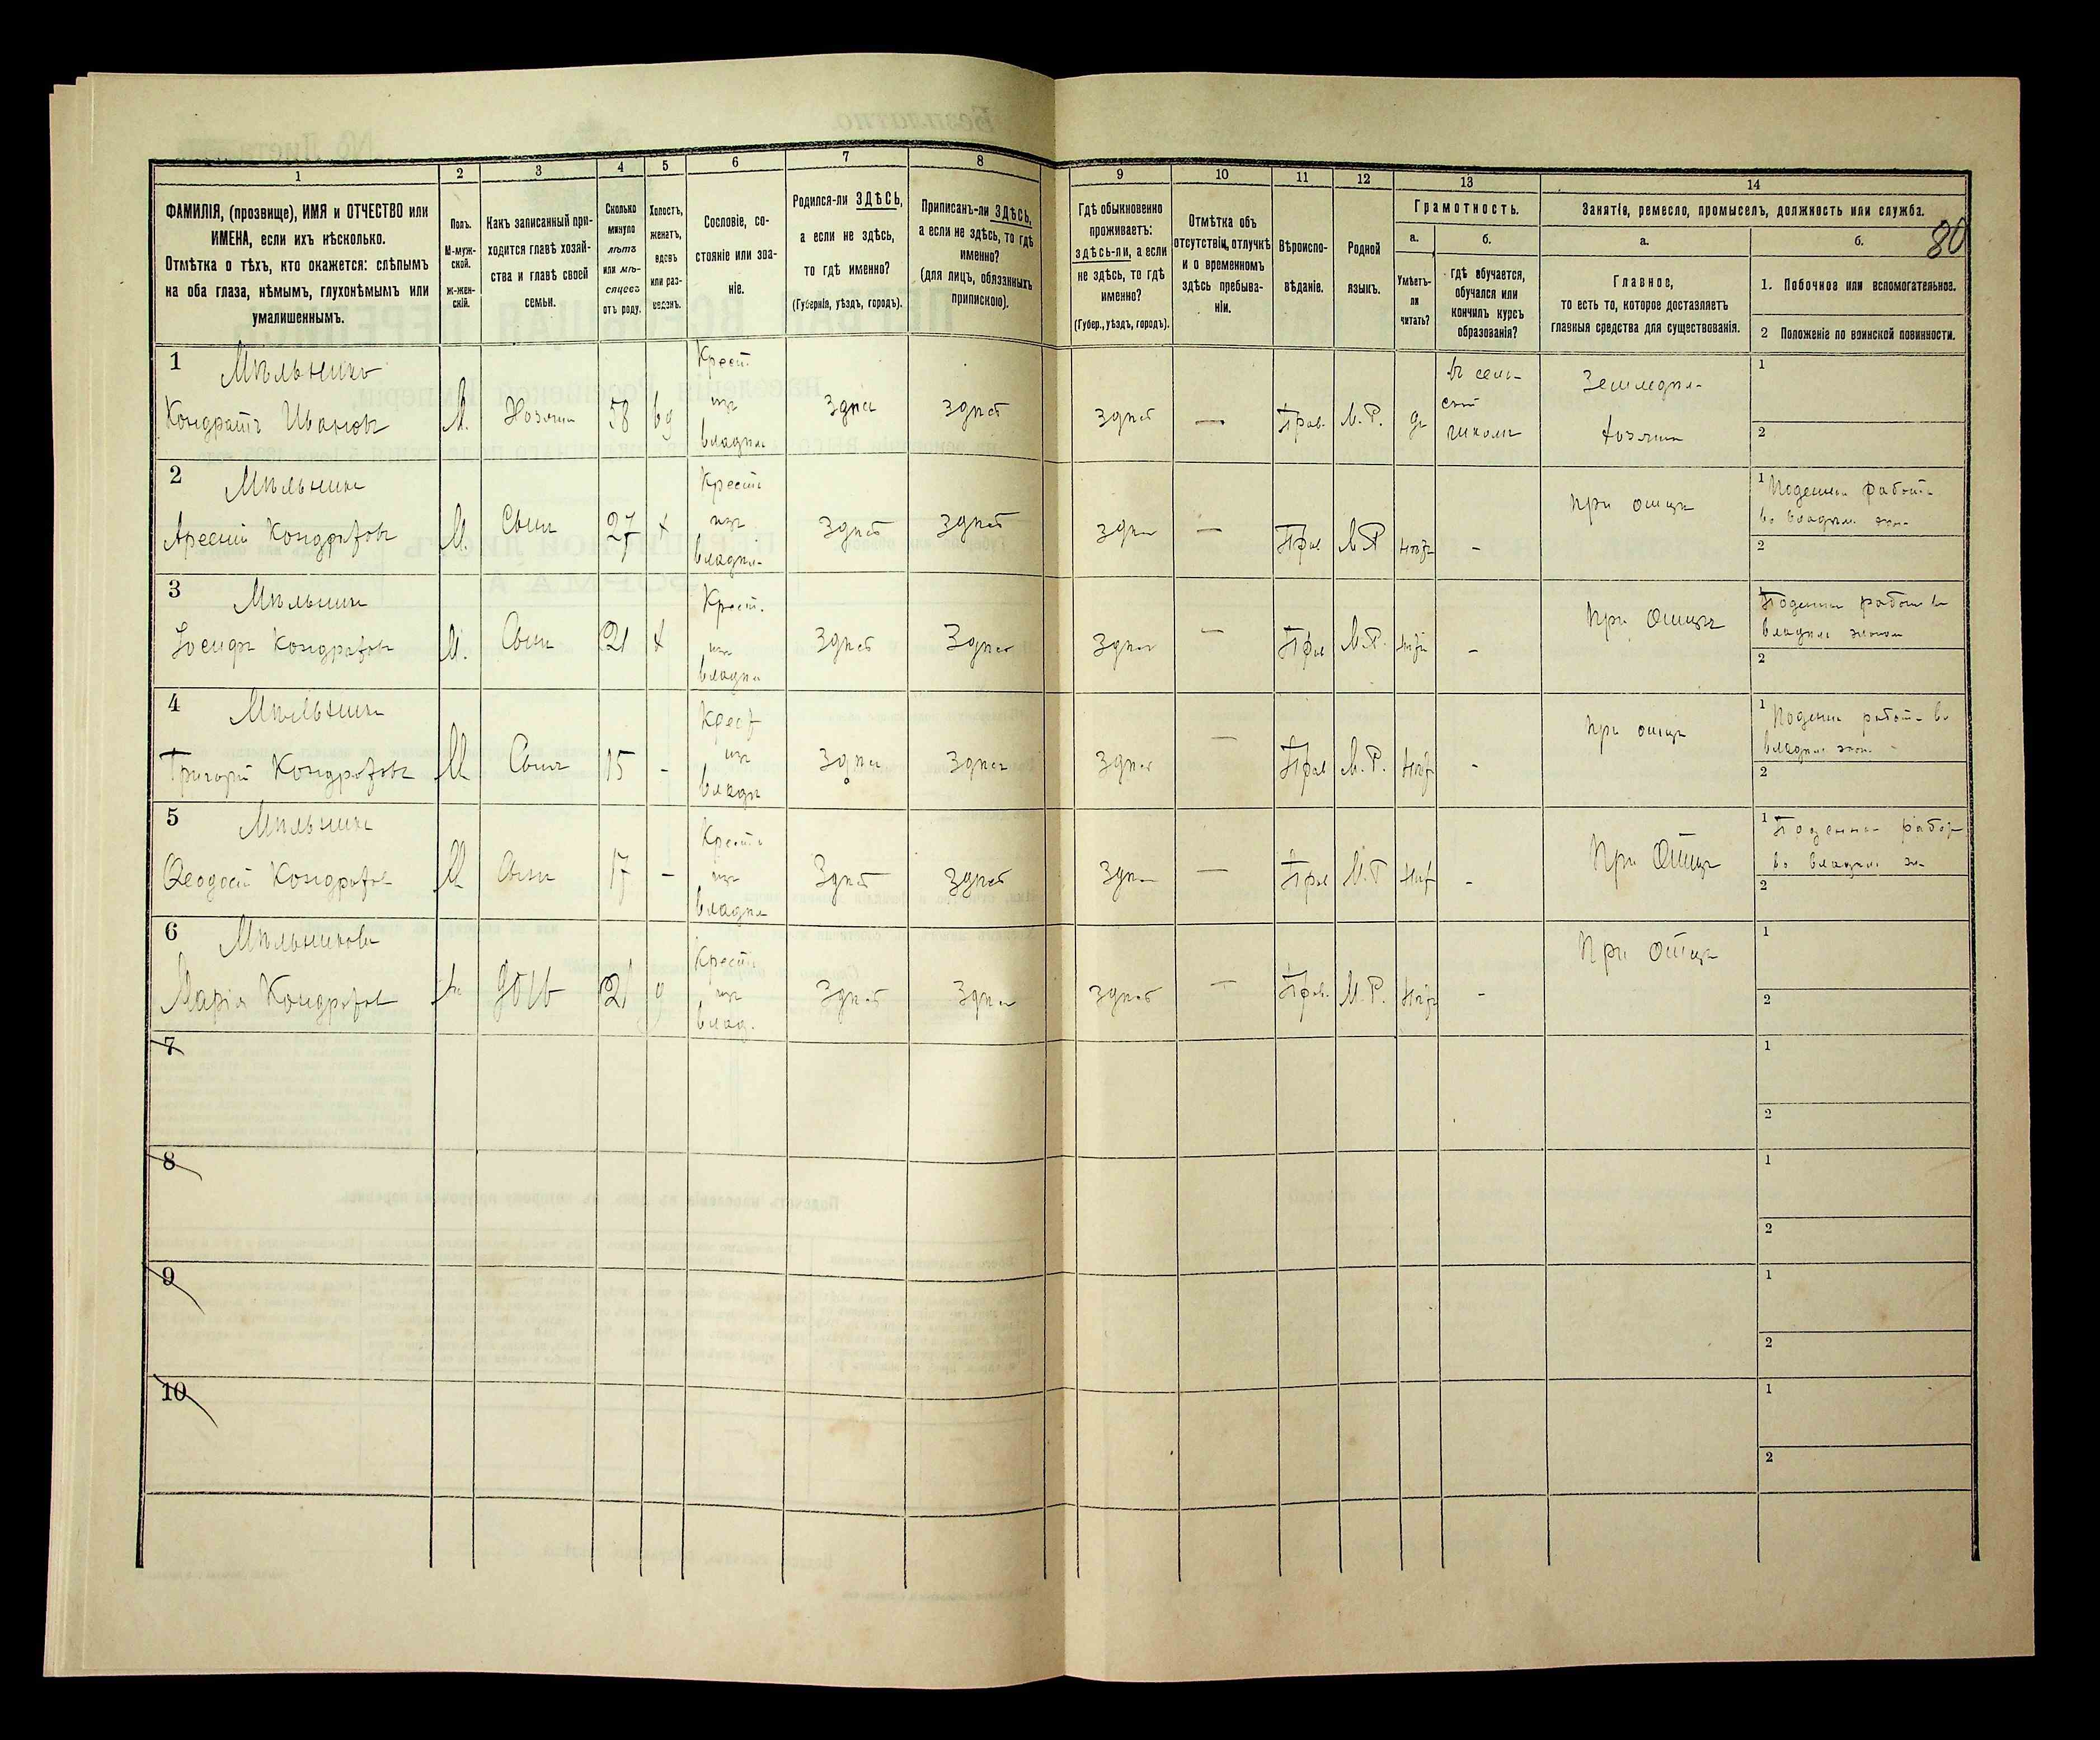 1 2 3 4 5 6 7 8 9 10 11 12 13 14
ФАМИЛІЯ, (прозвище), ИМЯ и ОТЧЕСТВО или
ИМЕНА, если ихъ нѣсколько.
Отмѣтка о тѣхъ, кто окажется: слѣпымъ
на оба глаза, нѣмымъ, глухонѣмымъ или
умалишеннымъ.
Полъ.
М-муж-
ской.
Ж-жен-
скій.
Какъ записанный при-
ходится главѣ хозяй-
ства и главѣ своей
семьи.
Сколько
минуло
лѣтъ
или мѣ-
сяцевъ
отъ роду.
Холостъ,
женатъ,
вдовъ
или раз-
веденъ.
Сословіе, со-
стояніе или зва-
ніе.
Родился-ли ЗДѢСЬ,
а если не здѣсь,
то гдѣ именно?
(Губернія, уѣздъ, городъ).
Приписанъ-ли ЗДѢСЬ,
а если не здѣсь, то гдѣ
именно?
(для лицъ, обязанныхъ
припискою).
Гдѣ обыкновенно
проживаетъ:
здѣсь-ли, а если
не здѣсь, то гдѣ
именно?
(Губер., уѣздъ, городъ).
Отмѣтка объ
отсутствіи, отлучкѣ
и о временномъ
здѣсь пребыва-
ніи.
Вѣроиспо-
вѣданіе.
Родной
языкъ.
Грамотность.
а.
Умѣетъ-
ли
читать?
б.
гдѣ обучается,
обучался или
кончилъ курсъ
образованія?
Занятіе, ремесло, промыселъ, должность или служба.
80
а.
Главное,
то есть то, которое доставляетъ
главныя средства для существованія.
б.
1. Побочное или вспомогательное.
2 Положеніе по воинской повинности.
1 Мѣльникъ
Кондратъ Ивановъ
М. Хозяин 58 вд
Крест.
изъ
владѣл
здѣс здѣсь здѣсь — Прав. М.Р. да
въ сель-
ской
школѣ
Земледѣл-
хозяин
1
2
2 Мѣльникъ
Арсений Кондратовъ
М. Сынъ 27 х
Крест
изъ
владѣл-
здѣсь здѣсь здѣс — Прав М.Р нѣтъ -
при отцѣ
1 Поденная работ
во владѣл экон
2
3 Мѣльникъ
Іосифъ Кондратовъ
М. Сынъ 21 х
Крест.
изъ
владѣл
Здѣсь Здѣсь Здѣсь — Прав М.Р. нѣт -
при Отцѣ
1 Поденная работа во
владѣл эконом
2
4 Мѣльникъ
Григорій Кондратовъ
М Сынъ 15 -
Крест
изъ
владѣ
здѣсь здѣсь здѣсь — Прав М.Р. нѣт -
при отцѣ
1 Поденн работ во
владѣл экон
2
5 Мѣльникъ
Ѳеодосій Кондратов
М Сынъ 17 -
Крест
изъ
владѣл
Здѣсь здѣсь здѣс — Прав М.Р нѣт -
при Отцѣ
1 Поденная работ
во владѣл эк
2
6 Мѣльникова
Марія Кондратов
Ж дочь 21 д
Крест
изъ
влад.
здѣсь здѣсь здѣсь — Прав. М.Р. нѣтъ -
при отцѣ
1
2
7
1
2
8
1
2
9
1
2
10
1
2